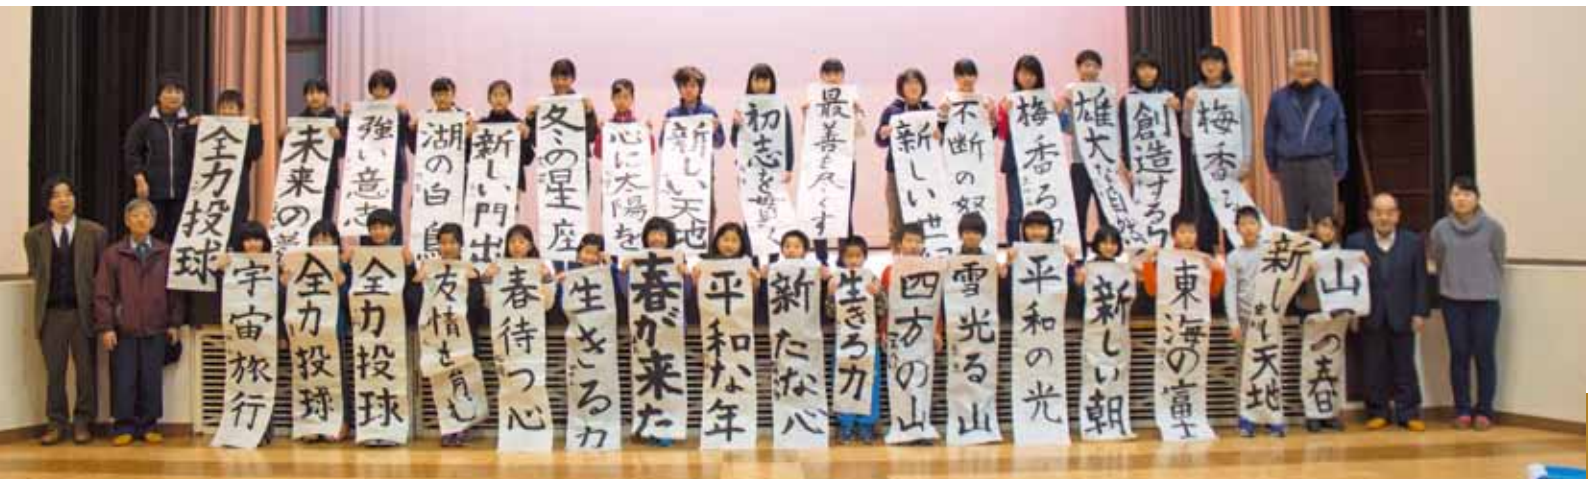 全力投球
未来の
強い意志
湖の白鳥
新しい門出
冬の星座
心に太陽を
新しい天地
初志を貫く
最善を尽くす
新しい世
不断の努
梅香る
雄大な自然
創造する
梅香
宇宙旅行
全力投球
全力投球
友情を育む
春待つ心
生きる力
春が来た
平和な年
新たな心
生きる力
四方の山
雪光る山
平和の光
新しい朝
東海の富士
新しい天地
山の春